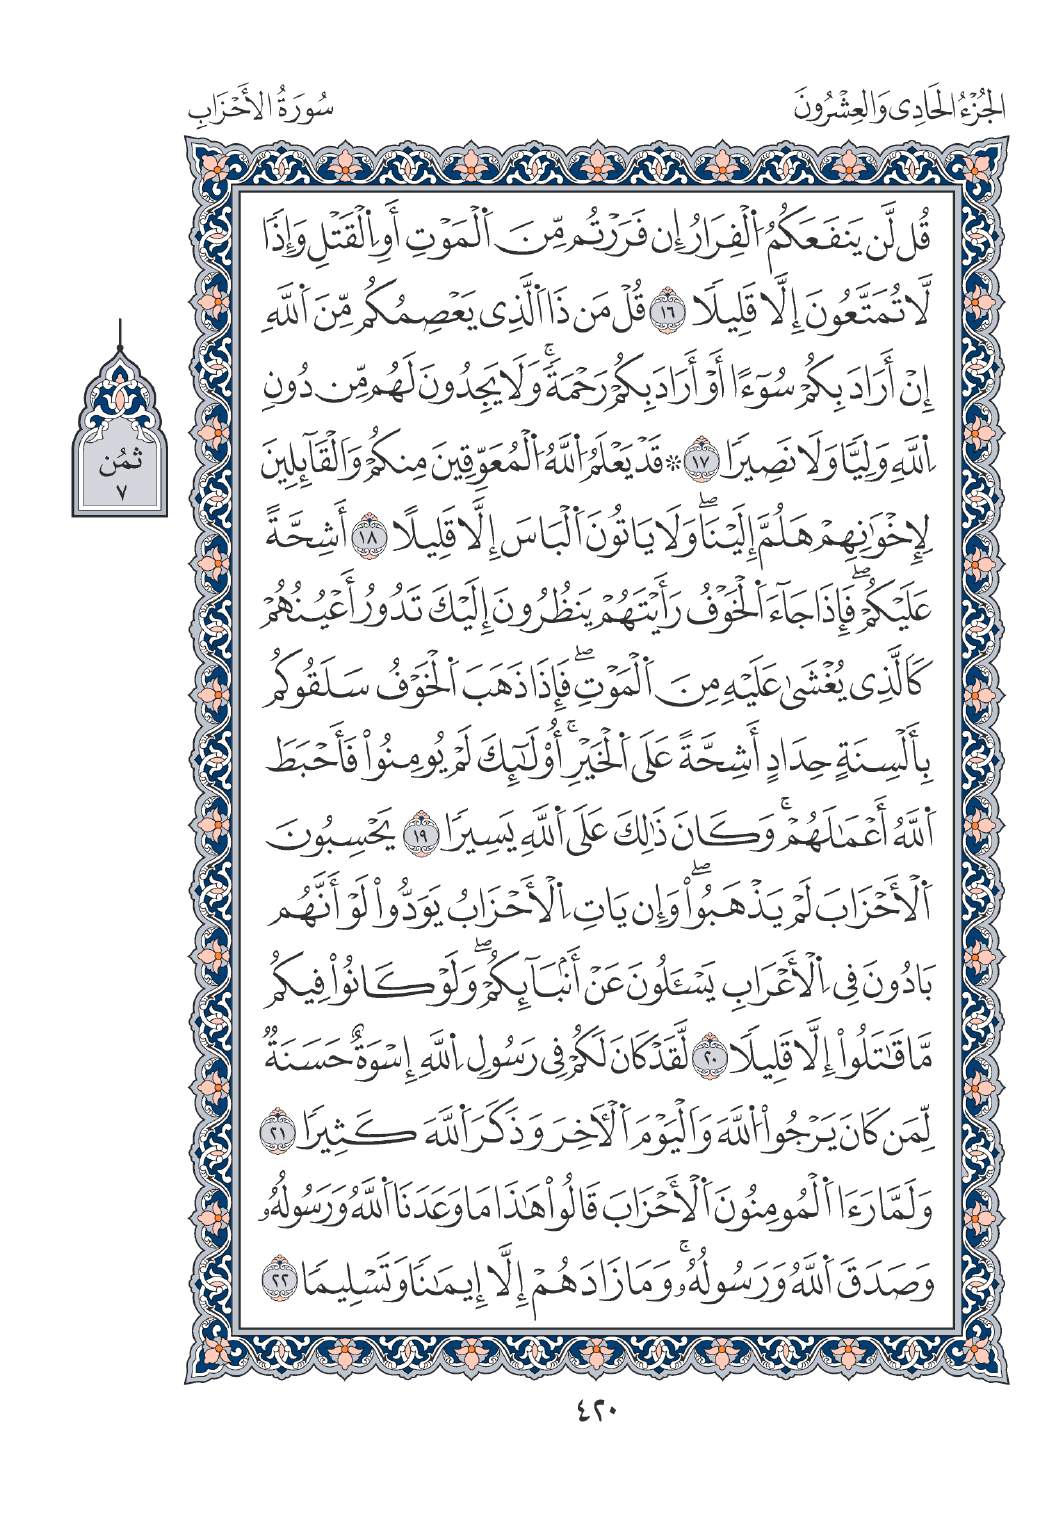 الجُزْءُ الحَادِى وَالعِشْرُونَ
سُورَةُ الأَحْزَابِ
قُل لَّن يَنفَعَكُمُ اُ۬لْفِرَارُ إِن فَرَرْتُم مِّنَ اَ۬لْمَوْتِ أَوِ اِ۬لْقَتْلِ وَإِذٗا
لَّا تُمَتَّعُونَ إِلَّا قَلِيلٗا ١٦ قُلْ مَن ذَا اَ۬لَّذِى يَعْصِمُكُم مِّنَ اَ۬للَّهِ
إِنْ أَرَادَ بِكُمْ سُوٓءًا أَوْ أَرَادَ بِكُمْ رَحْمَةٗۚ وَلَا يَجِدُونَ لَهُم مِّن دُونِ
اِ۬للَّهِ وَلِيّٗا وَلَا نَصِيرٗا ١٧ ۞ قَدْ يَعْلَمُ اُ۬للَّهُ اُ۬لْمُعَوِّقِينَ مِنكُمْ وَالْقَآئِلِينَ
لِإِخْوَٰنِهِمْ هَلُمَّ إِلَيْنَاۖ وَلَا يَاتُونَ اَ۬لْبَاسَ إِلَّا قَلِيلًا ١٨ أَشِحَّةً
عَلَيْكُمْۖ فَإِذَا جَآءَ اَ۬لْخَوْفُ رَأَيْتَهُمْ يَنظُرُونَ إِلَيْكَ تَدُورُ أَعْيُنُهُمْ
كَالَّذِى يُغْشَىٰ عَلَيْهِ مِنَ اَ۬لْمَوْتِۖ فَإِذَا ذَهَبَ اَ۬لْخَوْفُ سَلَقُوكُم
بِأَلْسِنَةٍ حِدَادٍ أَشِحَّةً عَلَى اَ۬لْخَيْرِۚ أُوْلَٰٓئِكَ لَمْ يُومِنُواْ فَأَحْبَطَ
اَ۬للَّهُ أَعْمَٰلَهُمْۚ وَكَانَ ذَٰلِكَ عَلَى اَ۬للَّهِ يَسِيرٗا ١٩ يَحْسِبُونَ
اَ۬لْأَحْزَابَ لَمْ يَذْهَبُواْۖ وَإِن يَاتِ اِ۬لْأَحْزَابُ يَوَدُّواْ لَوْ أَنَّهُم
بَادُونَ فِى اِ۬لْأَعْرَابِ يَسْـَٔلُونَ عَنْ أَنۢبَآئِكُمْۖ وَلَوْ كَانُواْ فِيكُم
مَّا قَٰتَلُواْ إِلَّا قَلِيلٗا ٢٠ لَّقَدْ كَانَ لَكُمْ فِى رَسُولِ اِ۬للَّهِ إِسْوَةٌ حَسَنَةٞ
لِّمَن كَانَ يَرْجُواْ اُ۬للَّهَ وَالْيَوْمَ اَ۬لْأٓخِرَ وَذَكَرَ اَ۬للَّهَ كَثِيرٗا ٢١
وَلَمَّا رَءَا اَ۬لْمُومِنُونَ اَ۬لْأَحْزَابَ قَالُواْ هَٰذَا مَا وَعَدَنَا اَ۬للَّهُ وَرَسُولُهُۥ
وَصَدَقَ اَ۬للَّهُ وَرَسُولُهُۥۚ وَمَا زَادَهُمْ إِلَّا إِيمَٰنٗا وَتَسْلِيمٗا ٢٢
ثمُن
٧
٤٢٠